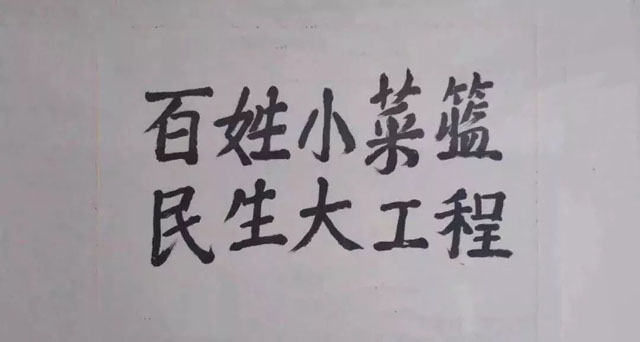 百姓小菜篮
民生大工程